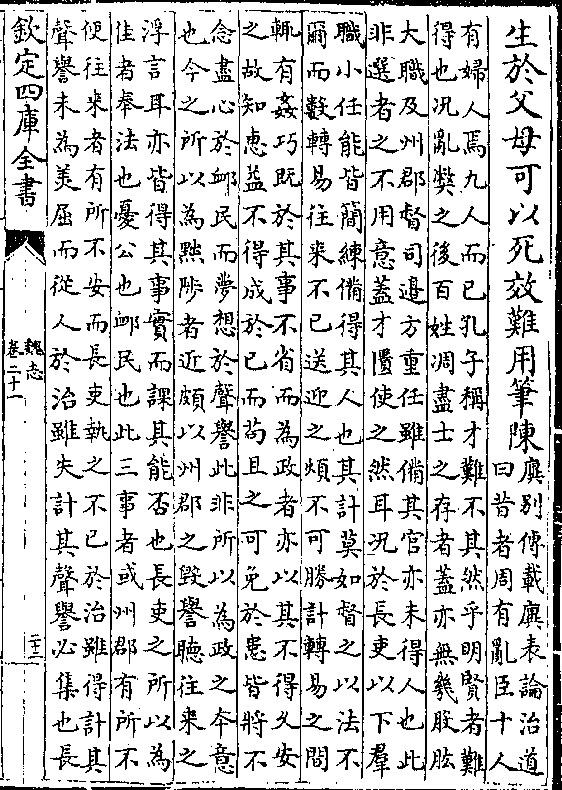 生於父母可以死效難用筆陳
廙別傳載廙表論治道
曰昔者周有亂臣十人
有婦人焉九人而已孔子稱才難不其然乎明賢者難
得也况亂弊之後百姓凋盡士之存者蓋亦無幾股肱
大職及州郡督司邊方重任雖備其官亦未得人也此
非選者之不用意蓋才匱使之然耳况於長吏以下羣
職小任能皆簡練備得其人也其計莫如督之以法不
爾而數轉易往來不已送迎之煩不可勝計轉易之間
輒有姦巧既於其事不省而為政者亦以其不得久安
之故知惠益不得成於已而苟且之可免於患皆將不
念盡心於䘏民而夢想於聲譽此非所以為政之本意
也今之所以為黜陟者近頗以州郡之毀譽聽往來之
浮言耳亦皆得其事實而課其能否也長吏之所以為
佳者奉法也憂公也䘏民也此三事者或州郡有所不
便往來者有所不安而長吏執之不已於治雖得計其
聲譽未為美屈而從人於治雖失計其聲譽必集也長
欽定四庫全書
魏志
卷二十一
二十二